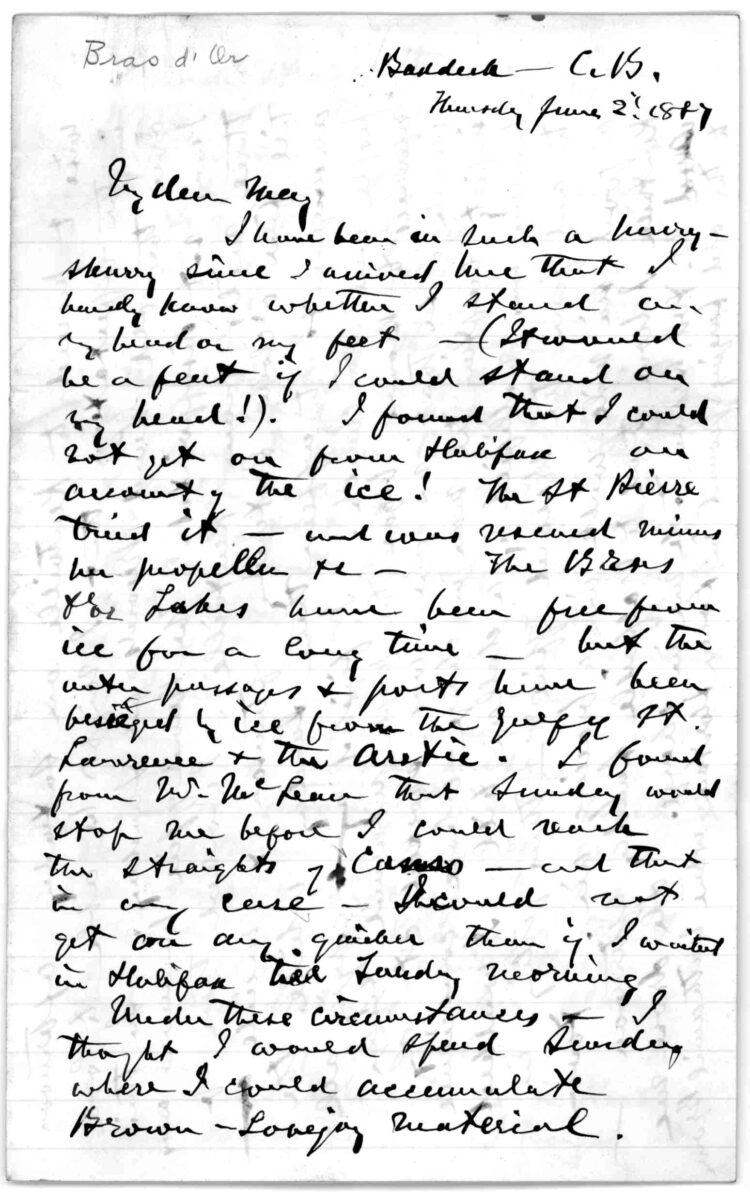 Bras d'Or
Baddeck — C. B.
Thursday June 2d. 1887
My dear May
I have been in such a hurry-
skurry since I arrived here that I
hardly know whether I stand on
my head or my feet — (It would
be a feat if I could stand on
my head!). I found that I could
not get on from Halifax on
account of the ice! The St Pierre
tried it — and was rescued minus
her propeller &c — The Bras
d'Or Lakes have been free from
ice for a long time — but the
outer passages & ports have been
besieged by ice from the Gulf of St.
Lawrence & the Arctic. I found
from Mr. McLean that Sunday would
stop me before I could reach
the straights of Canso — and that
in any case — I could not
get on any quicker than if I waited
in Halifax till Tuesday morning
Under these circumstances — I
thought I would spend Sunday
where I could accumulate
Brown-Lovejoy material.